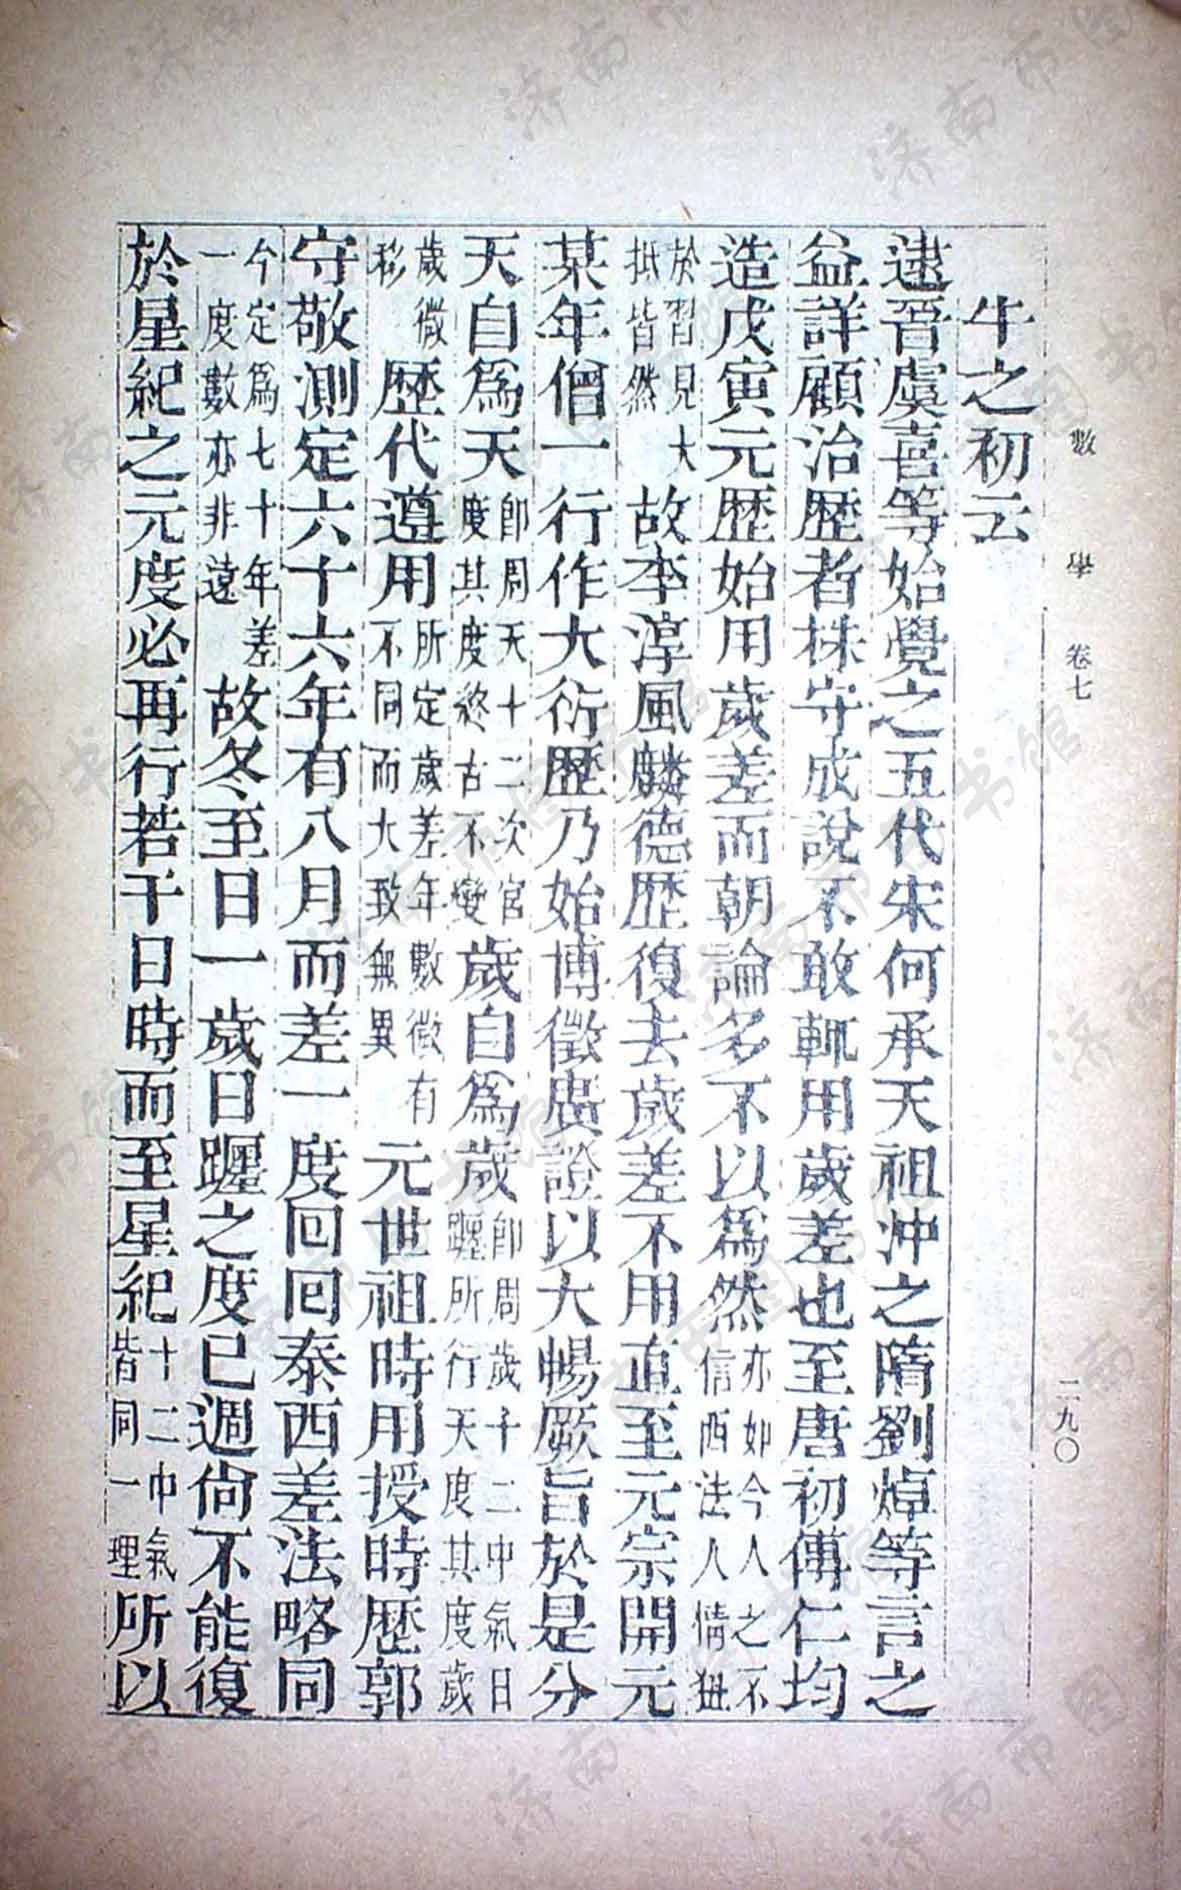 數學 卷七 二九〇
牛之初云
逮晉虞喜等始覺之五代宋何承天祖冲之隋劉焯等言之
益詳顧治歴者株守成說不敢輒用歲差也至唐初傅仁均
造戊寅元歴始用歲差而朝論多不以爲然亦如今人之不信西法人情狃
於習見大抵皆然故李淳風麟德歴復去歲差不用直至元宗開元
某年僧一行作大衍歴乃始博徵廣證以大暢厥旨於是分
天自爲天卽周天十二次宮度其度終古不變歲自爲歲卽周歲十二中氣日躔所行天度其度歲
歲微移歴代遵用所定歲差年數微有不同而大致無異元世祖時用授時歴郭
守敬測定六十六年有八月而差一度回回泰西差法略同
今定爲七十年差一度數亦非遠故冬至日一歲日躔之度已週尙不能復
於星紀之元度必再行若干日時而至星紀十二中氣皆同一理所以
济南市图书馆